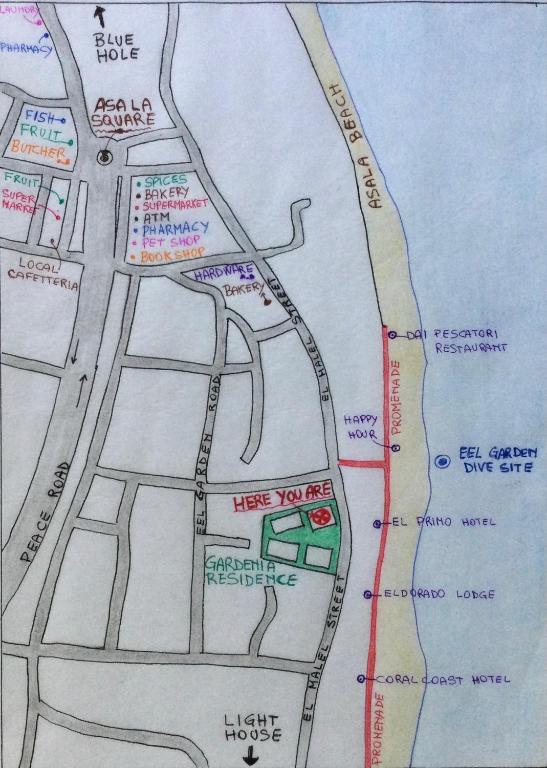 LAUNDRY
PHARMACY
BLUE
HOLE
ASALA
SQUARE
FISH
FRUIT
BUTCHER
FRUIT
SUPER
MARKET
LOCAL
CAFETTERIA
SPICES
BAKERY
SUPERMARKET
ATM
PHARMACY
PET SHOP
BOOKSHOP
HARDWARE
BAKERY
ASALA BEACH
EL MALEL STREET
DAI PESCATORI
RESTAURANT
PROMENADE
HAPPY
HOUR
EEL GARDEN
DIVE SITE
EEL GARDEN ROAD
PEACE ROAD
HERE YOU ARE
EL PRIMO HOTEL
GARDENIA
RESIDENCE
ELDORADO LODGE
EL MALEL STREET
CORAL COAST HOTEL
PROMENADE
LIGHT
HOUSE